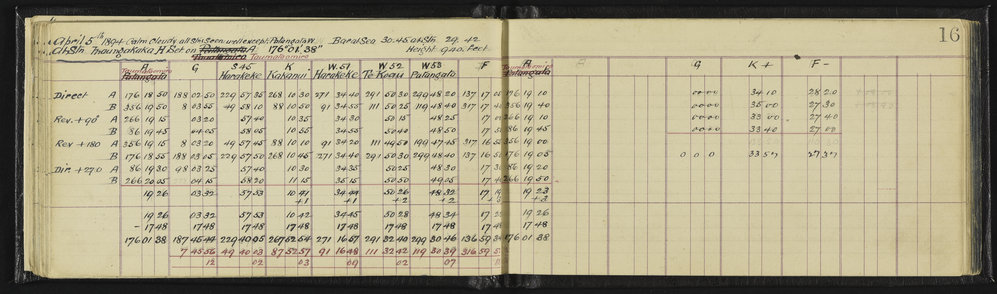 16
April 5th 1894 Calm Cloudy all Stns Seen well except Patangata W. Baro at Sea 30.45 at Stn 29.42
At Stn Maungakaka H Set on Patangata A. 176° 01' 38" Height 940. feet
Taumatamiro Taumatamiro
A G S45 K W.51 W52 W53 F A G K+ F-
Taumatamiro Harakeke Kakanui Harakeke Te Koau Patangata Taumatamiro
Patangata Patangata
Direct A 176 18 50 188 02 50 229 57 35 268 10 30 271 34 40 291 50 30 299 48 20 137 17 176 19 10 00 00 34 10 28 20
B 356 19 50 8 03 55 49 58 10 88 10 50 91 34 55 111 50 25 119 48 40 317 17 356 19 40 00 00 35 00 27 30
Rev. + 90° A 266 19 15 03 20 57 40 10 35 34 30 50 15 48 25 17 266 19 10 00 00 33 00 27 40
B 86 19 45 04 05 58 05 10 55 34 55 50 40 48 50 17 86 19 45 00 00 33 40 27 00
Rev + 180 A 356 19 15 8 03 20 49 57 45 88 10 10 91 34 20 111 49 50 199 47 45 317 16 356 19 00
B 176 18 55 188 03 05 229 57 50 268 10 45 271 34 40 291 50 30 299 48 40 137 16 176 19 05 0 0 0 33 57 27 37
Dir + 270 A 86 19 30 98 03 25 57 40 10 30 34 35 50 25 48 30 17 86 19 20
B 266 20 05 04 15 58 20 11 15 35 15 50 50 49 05 17 266 19 50
19 26 03 32 57 53 10 41 34 44 50 26 48 32 17 19 23
+1 +1 +2 +2 +3
19 26 03 32 57 53 10 42 34 45 50 28 48 34 17 19 26
- 17 48 17 48 17 48 17 48 17 48 17 48 17 48 17 17 48
176 01 38 187 45 44 229 40 05 267 52 54 271 16 57 291 32 40 299 30 46 136 59 176 01 38
7 45 56 49 40 03 87 52 57 91 16 48 111 32 42 119 30 39 316 59
12 02 03 09 02 07